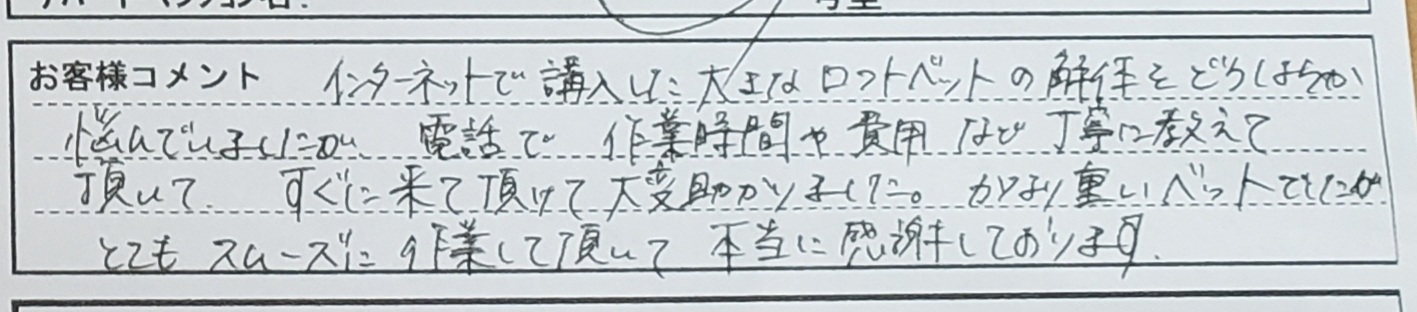 お客様コメント インターネットで講入した大きなロフトベットの解体をどうしようか
悩んでいましたが、電話で作業時間や費用など丁寧に教えて
頂いて、すぐに来て頂けて大変助かりました。かなり重いベットでしたが
とてもスムーズに作業して頂いて本当に感謝しております。